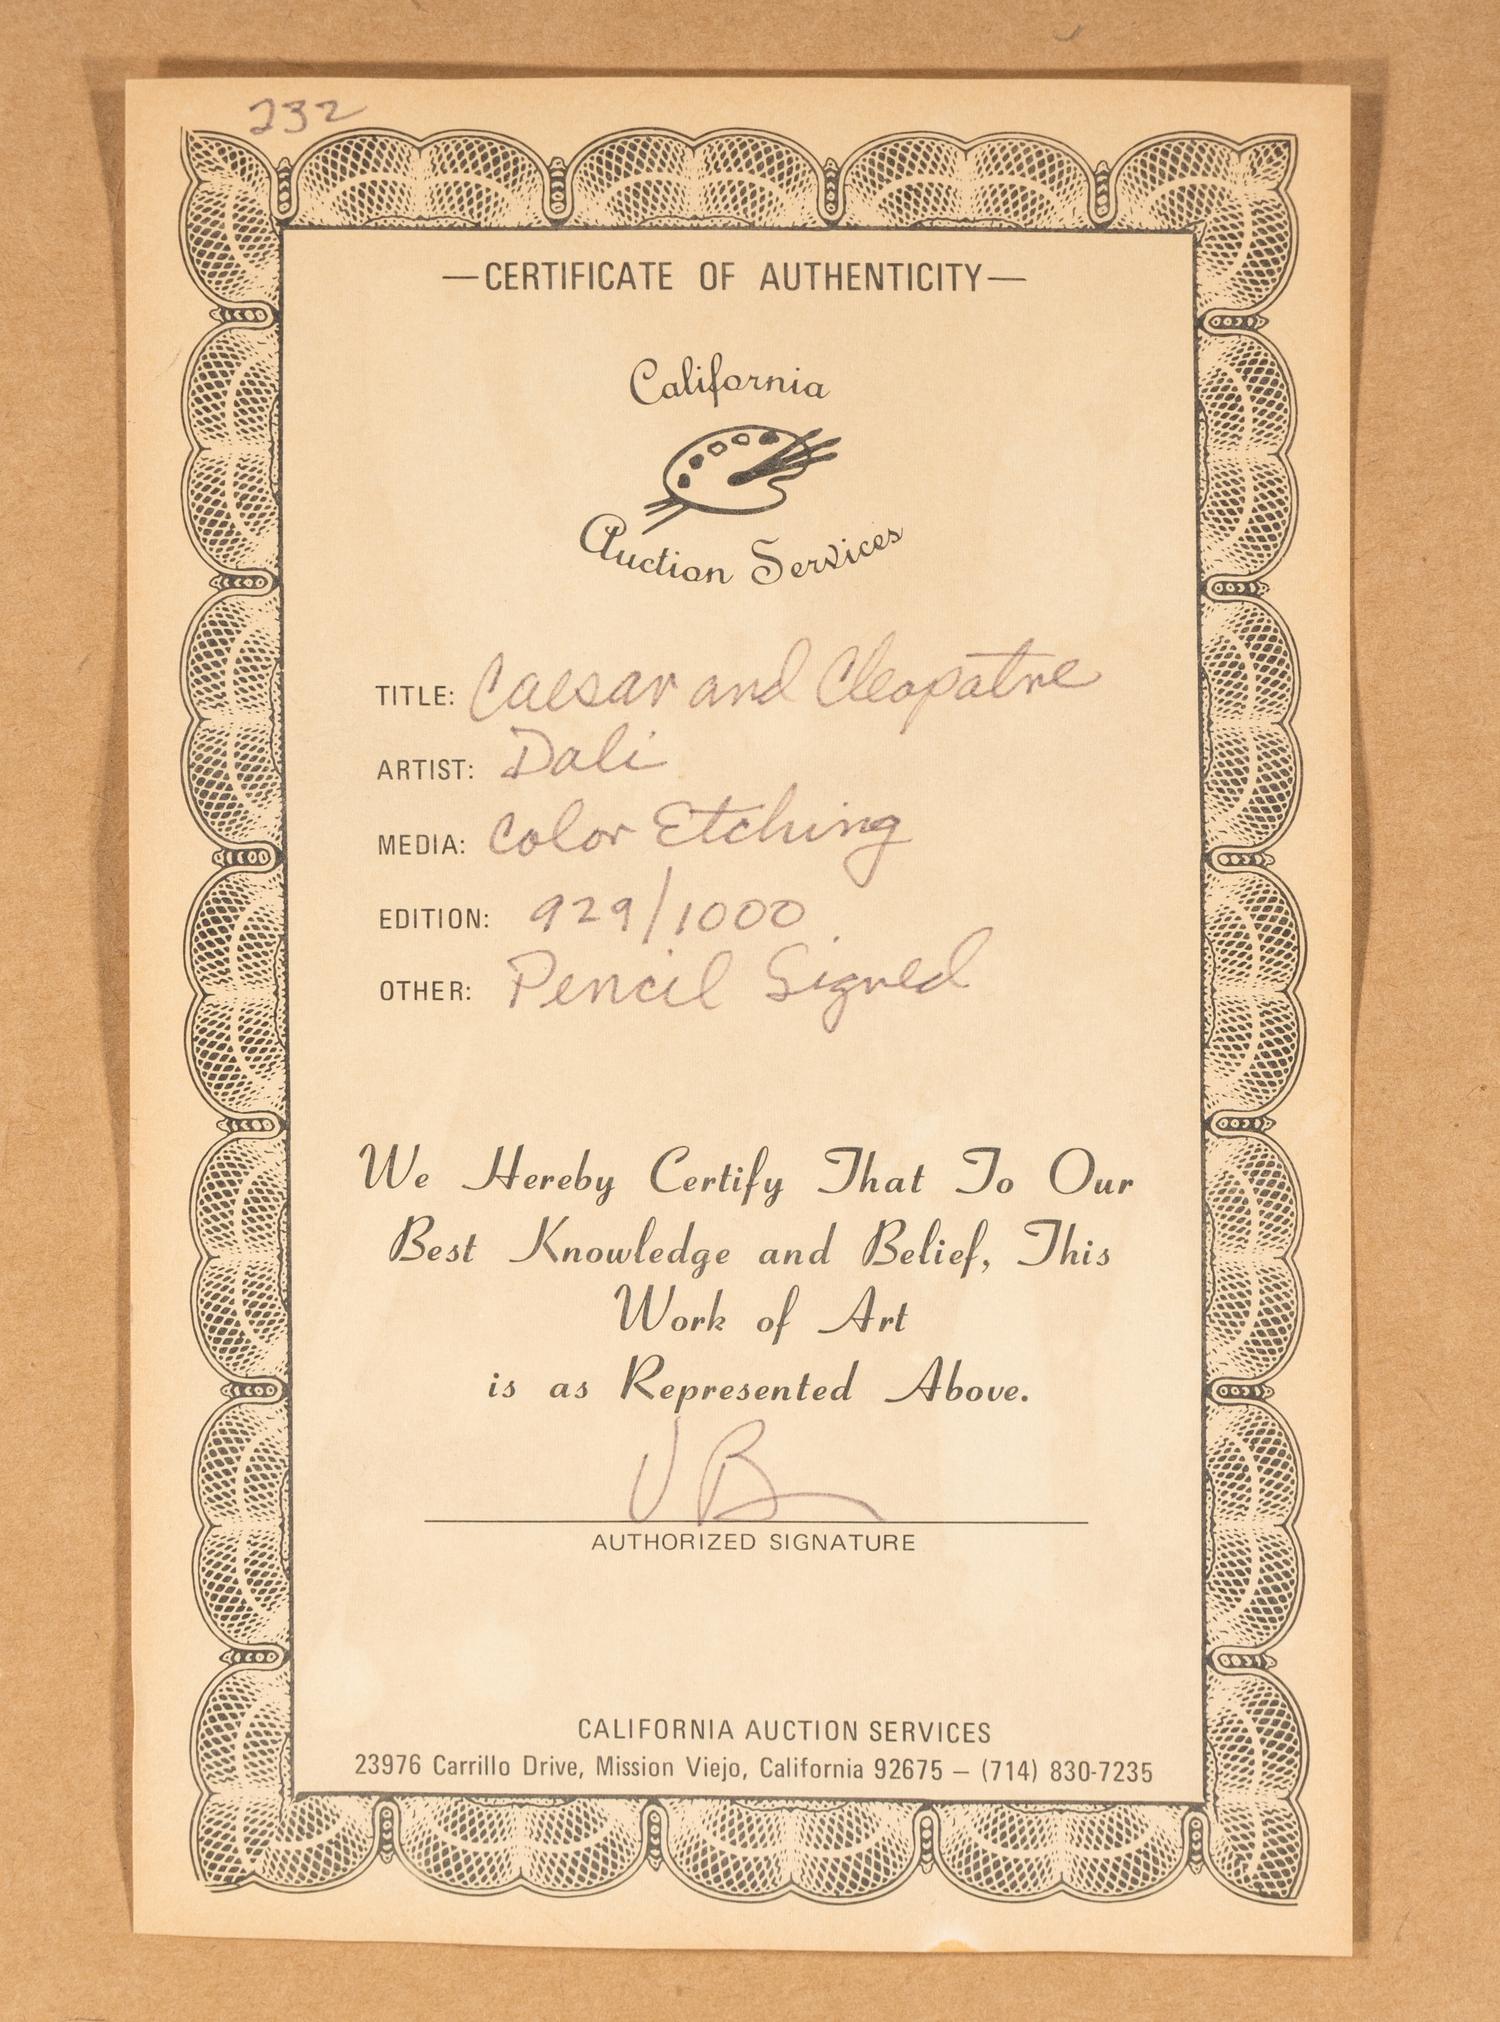 232
—CERTIFICATE OF AUTHENTICITY—
California
Auction Services
TITLE: Caesar and Cleopatre
ARTIST: Dali
MEDIA: Color Etching
EDITION: 929/1000
OTHER: Pencil Signed
We Hereby Certify That To Our
Best Knowledge and Belief, This
Work of Art
is as Represented Above.
AUTHORIZED SIGNATURE
CALIFORNIA AUCTION SERVICES
23976 Carrillo Drive, Mission Viejo, California 92675 – (714) 830-7235